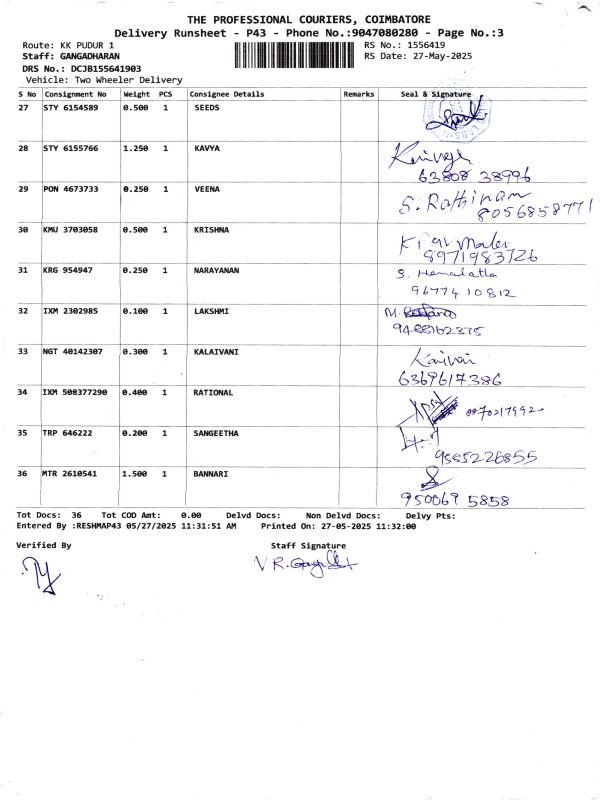 THE PROFESSIONAL COURIERS, COIMBATORE
Delivery Runsheet - P43 - Phone No.:9047080280 - Page No.:3
Route: KK PUDUR 1 RS No.: 1556419
Staff: GANGADHARAN RS Date: 27-May-2025
DRS No.: DCJB155641903
Vehicle: Two Wheeler Delivery
S No Consignment No Weight PCS Consignee Details Remarks Seal & Signature
27 STY 6154589 0.500 1 SEEDS
28 STY 6155766 1.250 1 KAVYA
63808 38996
29 PON 4673733 0.250 1 VEENA S. Rathinam
8056858771
30 KMU 3703058 0.500 1 KRISHNA
8971983726
31 KRG 954947 0.250 1 NARAYANAN S. Hemalatha
96774 10812
32 IXM 2302985 0.100 1 LAKSHMI M.
9488162375
33 NGT 40142307 0.300 1 KALAIVANI
6369617386
34 IXM 508377290 0.400 1 RATIONAL
35 TRP 646222 0.200 1 SANGEETHA
36 MTR 2610541 1.500 1 BANNARI
950069 5858
Tot Docs: 36 Tot COD Amt: 0.00 Delvd Docs: Non Delvd Docs: Delvy Pts:
Entered By :RESHMAP43 05/27/2025 11:31:51 AM Printed On: 27-05-2025 11:32:00
Verified By Staff Signature
V R.